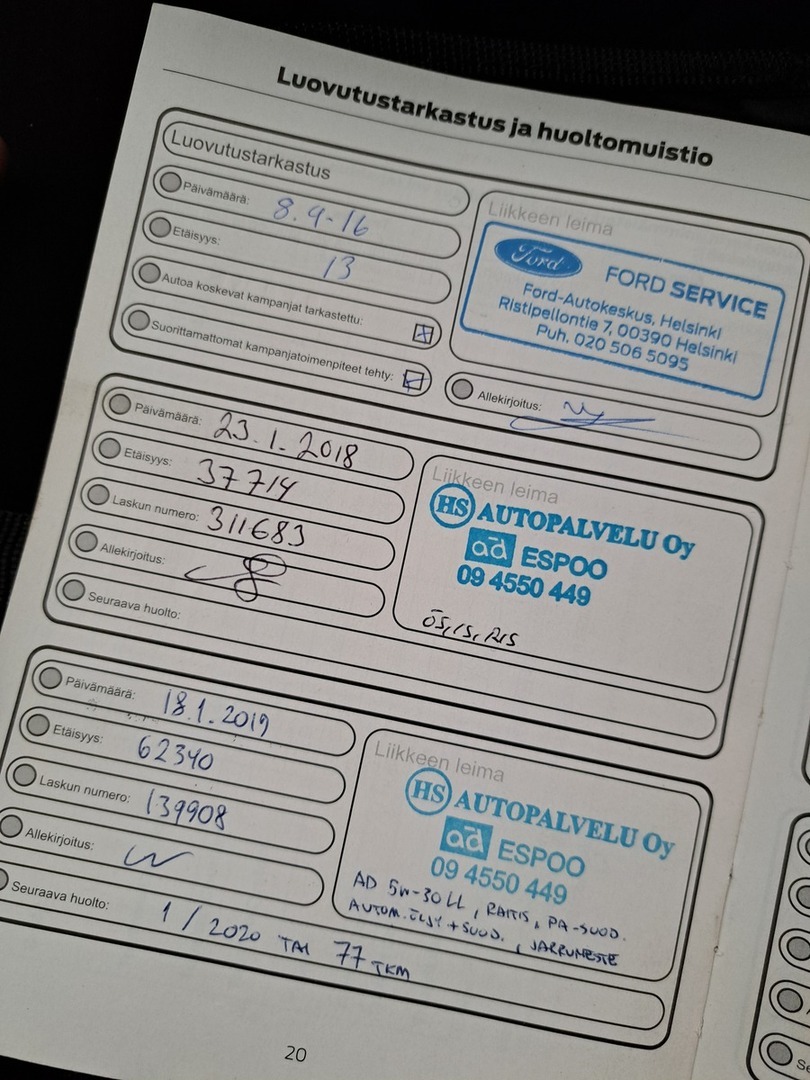 Luovutustarkastus ja huoltomuistio
Luovutustarkastus
Päivämäärä: 8.9-16
Etäisyys: 13
Autoa koskevat kampanjat tarkastettu:
Suorittamattomat kampanjatoimenpiteet tehty:
Liikkeen leima
Ford FORD SERVICE
Ford-Autokeskus, Helsinki
Ristipellontie 7, 00390 Helsinki
Puh. 020 506 5095
Allekirjoitus:
Päivämäärä: 23.1.2018
Etäisyys: 37714
Laskun numero: 311683
Allekirjoitus:
Seuraava huolto:
Liikkeen leima
HS AUTOPALVELU Oy
ad ESPOO
09 4550 449
ÖS, IS, RIS
Päivämäärä: 18.1.2019
Etäisyys: 62340
Laskun numero: 139908
Allekirjoitus:
Seuraava huolto: 1/2020 TAI 77 TKM
Liikkeen leima
HS AUTOPALVELU Oy
ad ESPOO
09 4550 449
AD 5W-30 LL, RAITIS, PA-SUOD.
AUTOM.ÖLJY + SUOD., JARRUNESTE
20